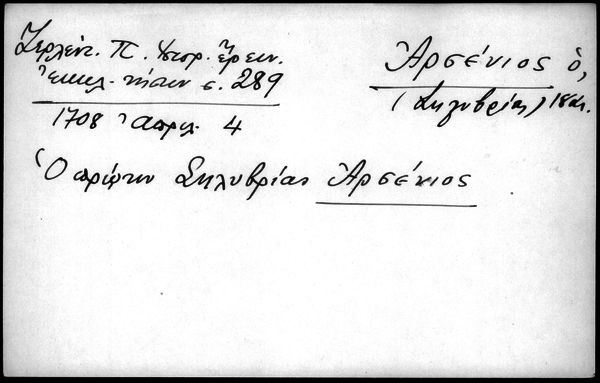 Ζερλέντ. Π. Ἱστορ. Ἔρευν.
Ἐκκλ. νήσων σ. 289
1708 Ἀπριλ. 4
Ἀρσένιος ὁ,
(Σηλυβρίας) 18 αἰ.
Ὁ πρώην Σηλυβρίας Ἀρσένιος